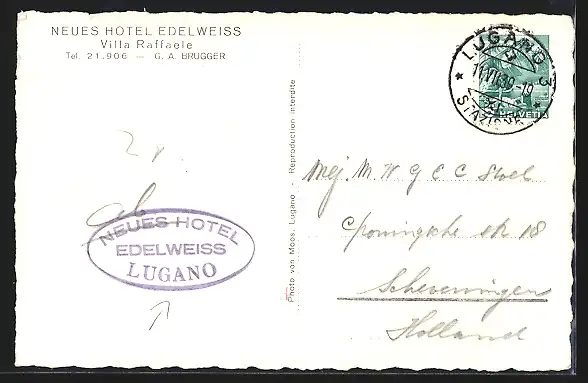 NEUES HOTEL EDELWEISS
Villa Raffaele
Tel. 21.906 — G. A. BRUGGER
LUGANO 3
11.VII.39-19
STAZIONE
HELVETIA
NEUES HOTEL
EDELWEISS
LUGANO
Photo van Moos, Lugano - Reproduction interdite
Mej. M W G E C Stoel
str 18
Scheveningen
Holland